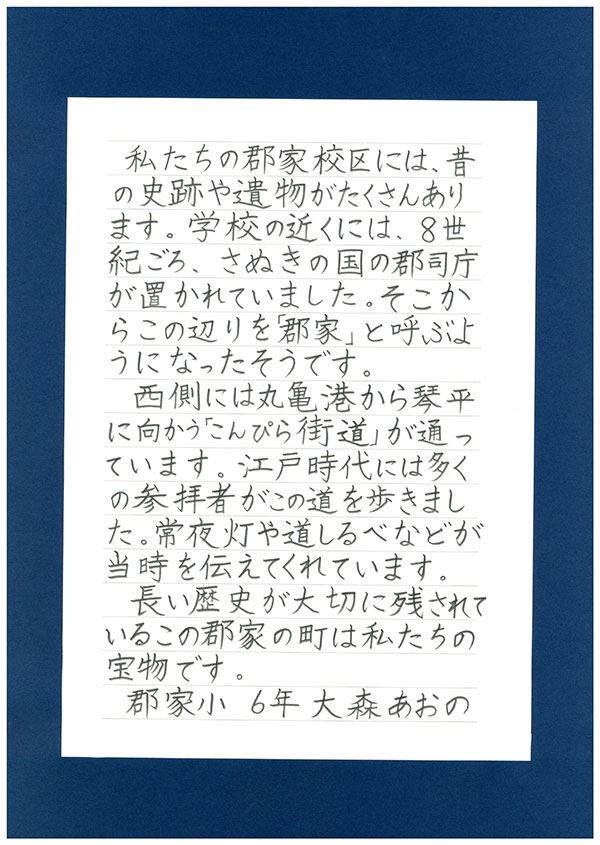 私たちの郡家校区には、昔
の史跡や遺物がたくさんあり
ます。学校の近くには、8世
紀ごろ、さぬきの国の郡司庁
が置かれていました。そこか
らこの辺りを「郡家」と呼ぶよ
うになったそうです。
西側には丸亀港から琴平
に向かう「こんぴら街道」が通っ
ています。江戸時代には多く
の参拝者がこの道を歩きまし
た。常夜灯や道しるべなどが
当時を伝えてくれています。
長い歴史が大切に残されて
いるこの郡家の町は私たちの
宝物です。
郡家小 6年 大森あおの